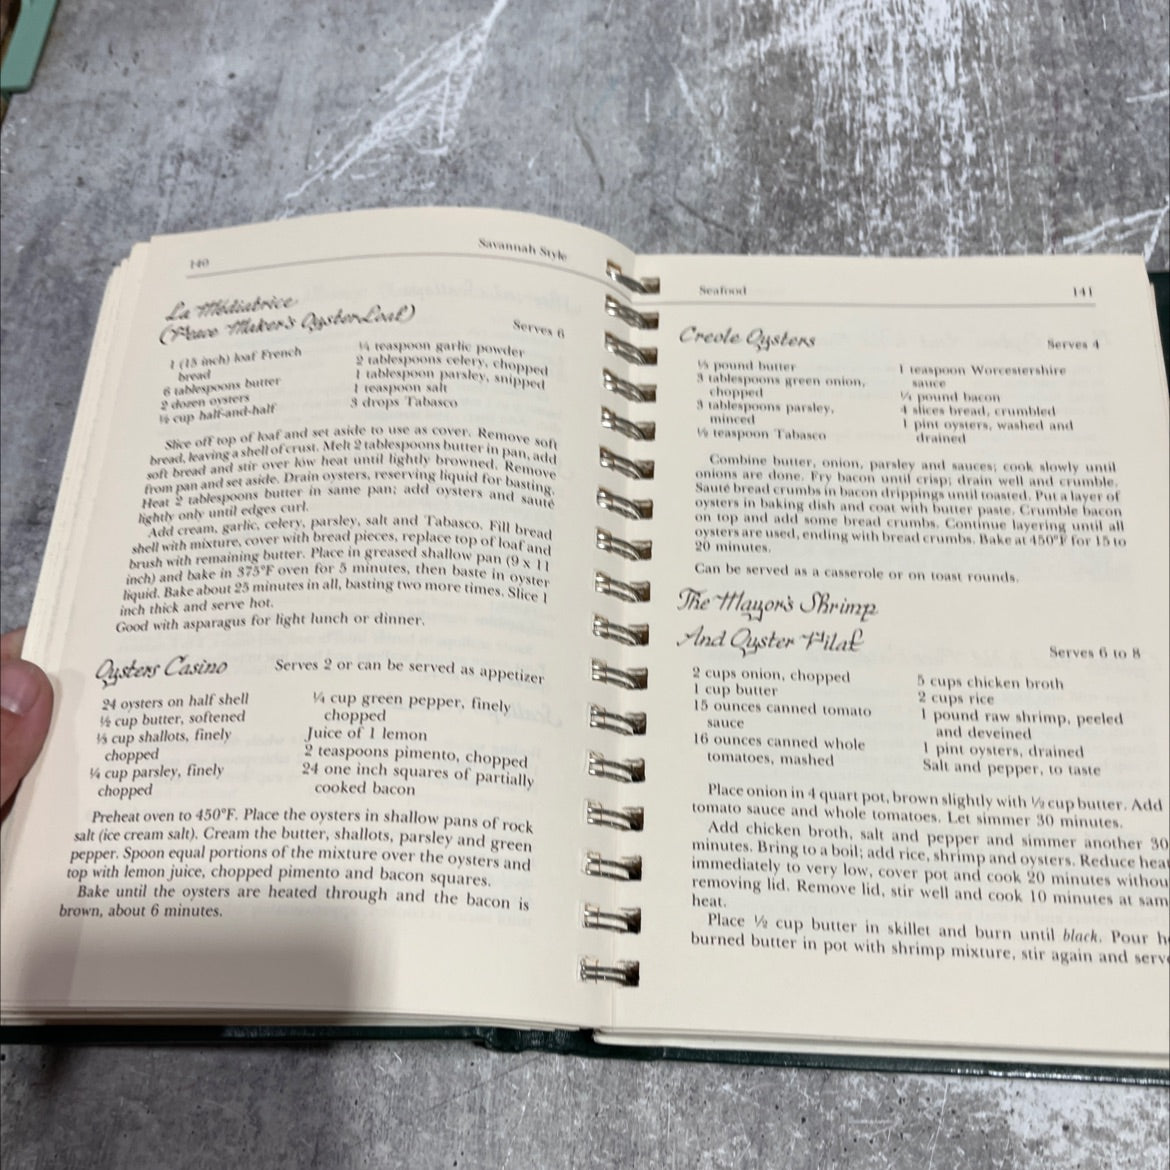 140
Savannah Style
La Médiatrice
(Peace Maker's Oyster Loaf)
Serves 6
1 (15 inch) loaf French
bread
6 tablespoons butter
2 dozen oysters
½ cup half-and-half
¼ teaspoon garlic powder
2 tablespoons celery, chopped
1 tablespoon parsley, snipped
1 teaspoon salt
3 drops Tabasco
Slice off top of loaf and set aside to use as cover. Remove soft
bread, leaving a shell of crust. Melt 2 tablespoons butter in pan, add
soft bread and stir over low heat until lightly browned. Remove
from pan and set aside. Drain oysters, reserving liquid for basting.
Heat 2 tablespoons butter in same pan; add oysters and sauté
lightly only until edges curl.
Add cream, garlic, celery, parsley, salt and Tabasco. Fill bread
shell with mixture, cover with bread pieces, replace top of loaf and
brush with remaining butter. Place in greased shallow pan (9 x 11
inch) and bake in 375°F oven for 5 minutes, then baste in oyster
liquid. Bake about 25 minutes in all, basting two more times. Slice 1
inch thick and serve hot.
Good with asparagus for light lunch or dinner.
Oysters Casino
Serves 2 or can be served as appetizer
24 oysters on half shell
½ cup butter, softened
⅓ cup shallots, finely
chopped
¼ cup parsley, finely
chopped
¼ cup green pepper, finely
chopped
Juice of 1 lemon
2 teaspoons pimento, chopped
24 one inch squares of partially
cooked bacon
Preheat oven to 450°F. Place the oysters in shallow pans of rock
salt (ice cream salt). Cream the butter, shallots, parsley and green
pepper. Spoon equal portions of the mixture over the oysters and
top with lemon juice, chopped pimento and bacon squares.
Bake until the oysters are heated through and the bacon is
brown, about 6 minutes.
Seafood
141
Creole Oysters
Serves 4
pound butter
3 tablespoons green onion,
chopped
3 tablespoons parsley,
minced
½ teaspoon Tabasco
1 teaspoon Worcestershire
sauce
pound bacon
4 slices bread, crumbled
1 pint oysters, washed and
drained
Combine butter, onion, parsley and sauces; cook slowly until
onions are done. Fry bacon until crisp; drain well and crumble.
Sauté bread crumbs in bacon drippings until toasted. Put a layer of
oysters in baking dish and coat with butter paste. Crumble bacon
on top and add some bread crumbs. Continue layering until all
oysters are used, ending with bread crumbs. Bake at 450°F for 15 to
20 minutes.
Can be served as a casserole or on toast rounds.
The Mayor's Shrimp
And Oyster Pilaf
Serves 6 to 8
2 cups onion, chopped
1 cup butter
15 ounces canned tomato
sauce
16 ounces canned whole
tomatoes, mashed
5 cups chicken broth
2 cups rice
1 pound raw shrimp, peeled
and deveined
1 pint oysters, drained
Salt and pepper, to taste
Place onion in 4 quart pot, brown slightly with ½ cup butter. Add
tomato sauce and whole tomatoes. Let simmer 30 minutes.
Add chicken broth, salt and pepper and simmer another 30
minutes. Bring to a boil; add rice, shrimp and oysters. Reduce heat
immediately to very low, cover pot and cook 20 minutes withou
removing lid. Remove lid, stir well and cook 10 minutes at sam
heat.
Place ½ cup butter in skillet and burn until black. Pour h
burned butter in pot with shrimp mixture, stir again and serv